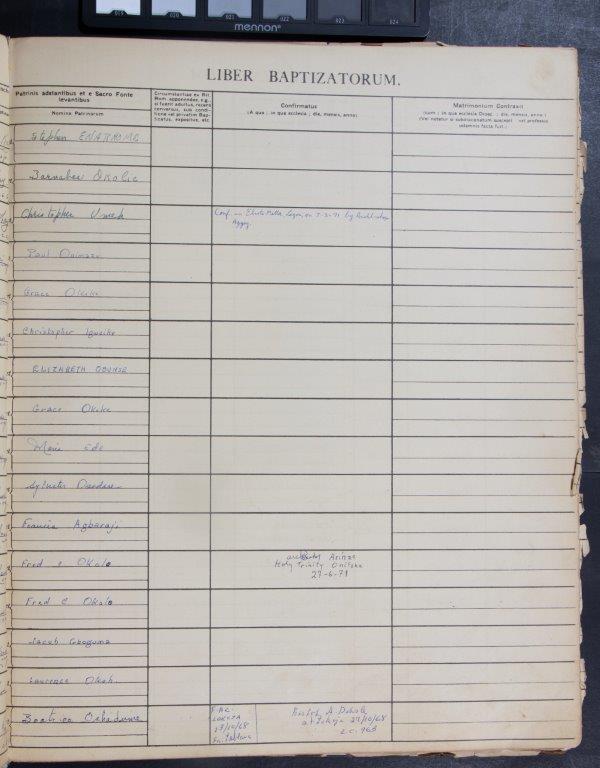 019 020 021 022 023 024
mennon
LIBER BAPTIZATORUM.
Patrinis adstantibus et e Sacro Fonte
levantibus
Nomina Patrinorum
Circumstantiae ex Rit.
Rom. apponendae, e.g.,
si fuerit adultus, recens
conversus, sub condi-
tione vel privatim Bap-
tizatus, expositus, etc.
Confirmatus
(A quo ; in qua ecclesia ; die, mensis, anno)
Matrimonium Contraxit
(cum ; in qua ecclesia ; die, mensis, anno)
(Vel notetur si subdiaconatum suscepit vel professio
solemnis facta fuit.)
Stephen
Barnabas Okolie
Christopher Umeh
Conf. in Ebute Metta, Lagos, on 7-3-71 by Archbishop
Aggey
Paul
Grace Okeke
Christopher Igweike
ELIZABETH
Grace Okeke
Marie Ede
Sylvester
Francis Agbaraji
Fred C Okolo
Arinze
Holy Trinity Onitsha
27-6-71
Fred C Okolo
Jacob
Laurence Okoh
Beatrice
LOKOJA
27/10/68
Bishop A. Delisle
at Lokoja 27/10/68
L.C. 963